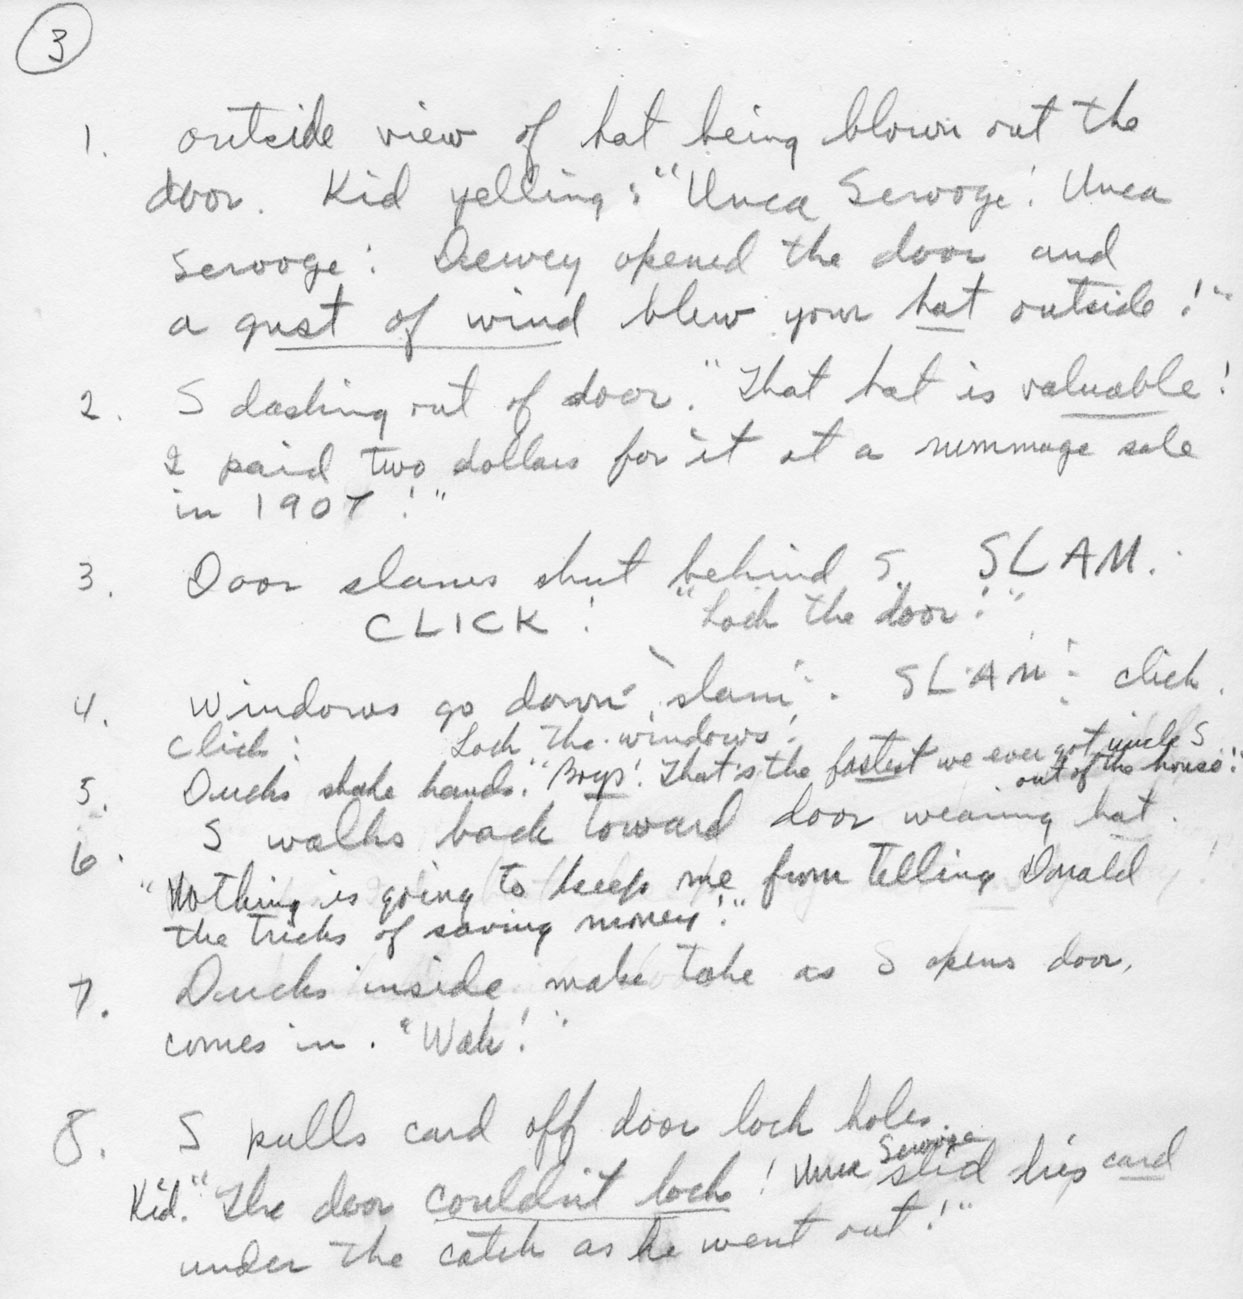 3
1. outside view of hat being blown out the
door. Kid yelling: "Unca Scrooge! Unca
Scrooge! Dewey opened the door and
a gust of wind blew your hat outside!"
2. S dashing out of door. "That hat is valuable!
I paid two dollars for it at a rummage sale
in 1907!"
3. Door slams shut behind S. SLAM.
CLICK! "Lock the door!"
4. Windows go down "slam". SLAM! click.
Click! Lock the windows!
5. Ducks shake hands. "Boys! That's the fastest we ever got uncle S
out of the house!"
6. S walks back toward door wearing hat.
"Nothing is going to keep me from telling Donald
the tricks of saving money!"
7. Ducks inside make take as S opens door,
comes in. "Wak!"
8. S pulls card off door lock holes.
Kid. "The door couldn't lock! Unca Scrooge slid his card
under the catch as he went out!"